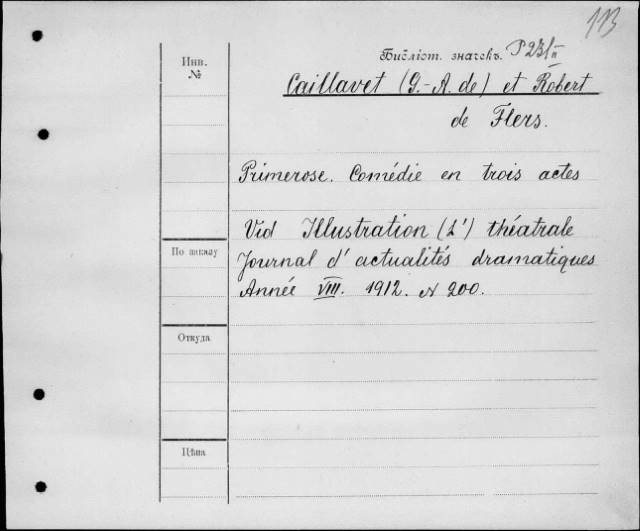 113
Инв.
№
Библіот. значекъ. P231 II
Caillavet (G.-A. de) et Robert
de Flers.
Primerose. Comédie en trois actes
Vid Illustration (L') théatrale
По заказу
Journal d'actualités dramatiques
Année VIII. 1912. N 200.
Откуда
Цѣна